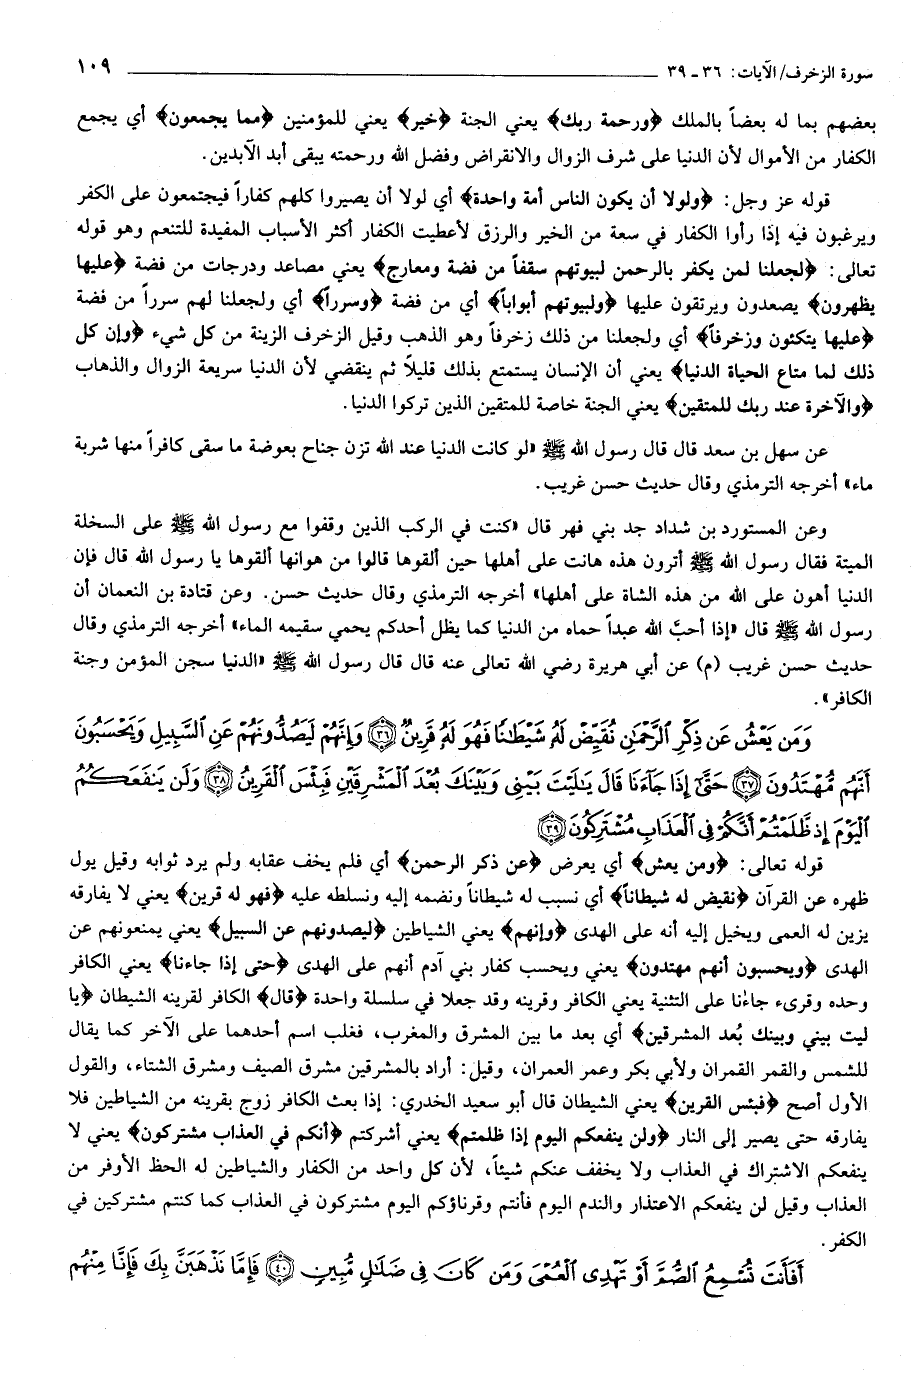 سورة الزخرف/ الآيات: ٣٦ - ٣٩ ١٠٩
بعضهم بما له بعضاً بالملك ﴿ورحمة ربك﴾ يعني الجنة ﴿خير﴾ يعني للمؤمنين ﴿مما يجمعون﴾ أي يجمع
الكفار من الأموال لأن الدنيا على شرف الزوال والانقراض وفضل الله ورحمته يبقى أبد الآبدين.
قوله عز وجل: ﴿ولولا أن يكون الناس أمة واحدة﴾ أي لولا أن يصيروا كلهم كفاراً فيجتمعون على الكفر
ويرغبون فيه إذا رأوا الكفار في سعة من الخير والرزق لأعطيت الكفار أكثر الأسباب المفيدة للتنعم وهو قوله
تعالى: ﴿لجعلنا لمن يكفر بالرحمن لبيوتهم سقفاً من فضة ومعارج﴾ يعني مصاعد ودرجات من فضة ﴿عليها
يظهرون﴾ يصعدون ويرتقون عليها ﴿ولبيوتهم أبواباً﴾ أي من فضة ﴿وسرراً﴾ أي ولجعلنا لهم سرراً من فضة
﴿عليها يتكئون وزخرفاً﴾ أي ولجعلنا من ذلك زخرفاً وهو الذهب وقيل الزخرف الزينة من كل شيء ﴿وإن كل
ذلك لما متاع الحياة الدنيا﴾ يعني أن الإنسان يستمتع بذلك قليلاً ثم ينقضي لأن الدنيا سريعة الزوال والذهاب
﴿والآخرة عند ربك للمتقين﴾ يعني الجنة خاصة للمتقين الذين تركوا الدنيا.
عن سهل بن سعد قال قال رسول الله ﷺ «لو كانت الدنيا عند الله تزن جناح بعوضة ما سقى كافراً منها شربة
ماء» أخرجه الترمذي وقال حديث حسن غريب.
وعن المستورد بن شداد جد بني فهر قال «كنت في الركب الذين وقفوا مع رسول الله ﷺ على السخلة
الميتة فقال رسول الله ﷺ أترون هذه هانت على أهلها حين ألقوها قالوا من هوانها ألقوها يا رسول الله قال فإن
الدنيا أهون على الله من هذه الشاة على أهلها» أخرجه الترمذي وقال حديث حسن. وعن قتادة بن النعمان أن
رسول الله ﷺ قال «إذا أحبَّ الله عبداً حماه من الدنيا كما يظل أحدكم يحمي سقيمه الماء» أخرجه الترمذي وقال
حديث حسن غريب (م) عن أبي هريرة رضي الله تعالى عنه قال قال رسول الله ﷺ «الدنيا سجن المؤمن وجنة
الكافر».
وَمَن يَعْشُ عَن ذِكْرِ ٱلرَّحْمَٰنِ نُقَيِّضْ لَهُۥ شَيْطَٰنًا فَهُوَ لَهُۥ قَرِينٌ ﴿٣٦﴾ وَإِنَّهُمْ لَيَصُدُّونَهُمْ عَنِ ٱلسَّبِيلِ وَيَحْسَبُونَ
أَنَّهُم مُّهْتَدُونَ ﴿٣٧﴾ حَتَّىٰٓ إِذَا جَآءَنَا قَالَ يَٰلَيْتَ بَيْنِى وَبَيْنَكَ بُعْدَ ٱلْمَشْرِقَيْنِ فَبِئْسَ ٱلْقَرِينُ ﴿٣٨﴾ وَلَن يَنفَعَكُمُ
ٱلْيَوْمَ إِذ ظَّلَمْتُمْ أَنَّكُمْ فِى ٱلْعَذَابِ مُشْتَرِكُونَ ﴿٣٩﴾
قوله تعالى: ﴿ومن يعش﴾ أي يعرض ﴿عن ذكر الرحمن﴾ أي فلم يخف عقابه ولم يرد ثوابه وقيل يول
ظهره عن القرآن ﴿نقيض له شيطاناً﴾ أي نسبب له شيطاناً ونضمه إليه ونسلطه عليه ﴿فهو له قرين﴾ يعني لا يفارقه
يزين له العمى ويخيل إليه أنه على الهدى ﴿وإنهم﴾ يعني الشياطين ﴿ليصدونهم عن السبيل﴾ يعني يمنعونهم عن
الهدى ﴿ويحسبون أنهم مهتدون﴾ يعني ويحسب كفار بني آدم أنهم على الهدى ﴿حتى إذا جاءنا﴾ يعني الكافر
وحده وقرىء جاءانا على التثنية يعني الكافر وقرينه وقد جعلا في سلسلة واحدة ﴿قال﴾ الكافر لقرينه الشيطان ﴿يا
ليت بيني وبينك بُعد المشرقين﴾ أي بعد ما بين المشرق والمغرب، فغلب اسم أحدهما على الآخر كما يقال
للشمس والقمر القمران ولأبي بكر وعمر العمران، وقيل: أراد بالمشرقين مشرق الصيف ومشرق الشتاء، والقول
الأول أصح ﴿فبئس القرين﴾ يعني الشيطان قال أبو سعيد الخدري: إذا بعث الكافر زوج بقرينه من الشياطين فلا
يفارقه حتى يصير إلى النار ﴿ولن ينفعكم اليوم إذا ظلمتم﴾ يعني أشركتم ﴿أنكم في العذاب مشتركون﴾ يعني لا
ينفعكم الاشتراك في العذاب ولا يخفف عنكم شيئاً، لأن كل واحد من الكفار والشياطين له الحظ الأوفر من
العذاب وقيل لن ينفعكم الاعتذار والندم اليوم فأنتم وقرناؤكم اليوم مشتركون في العذاب كما كنتم مشتركين في
الكفر.
أَفَأَنتَ تُسْمِعُ ٱلصُّمَّ أَوْ تَهْدِى ٱلْعُمْىَ وَمَن كَانَ فِى ضَلَٰلٍ مُّبِينٍ ﴿٤٠﴾ فَإِمَّا نَذْهَبَنَّ بِكَ فَإِنَّا مِنْهُم